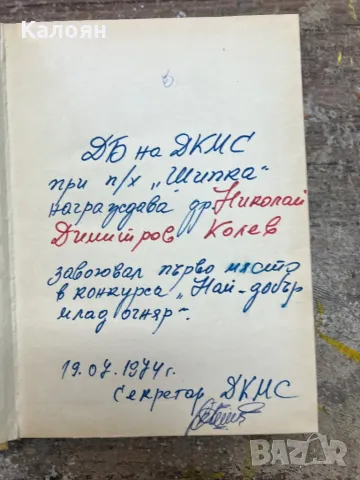 Калоян
5
ДБ на ДКМС
при п/х „Шипка"
награждава др. Николай
Димитров Колев
завоювал първо място
в конкурса „Най-добър
млад огняр".
19.07.1974г.
Секретар ДКМС
bazar.bg